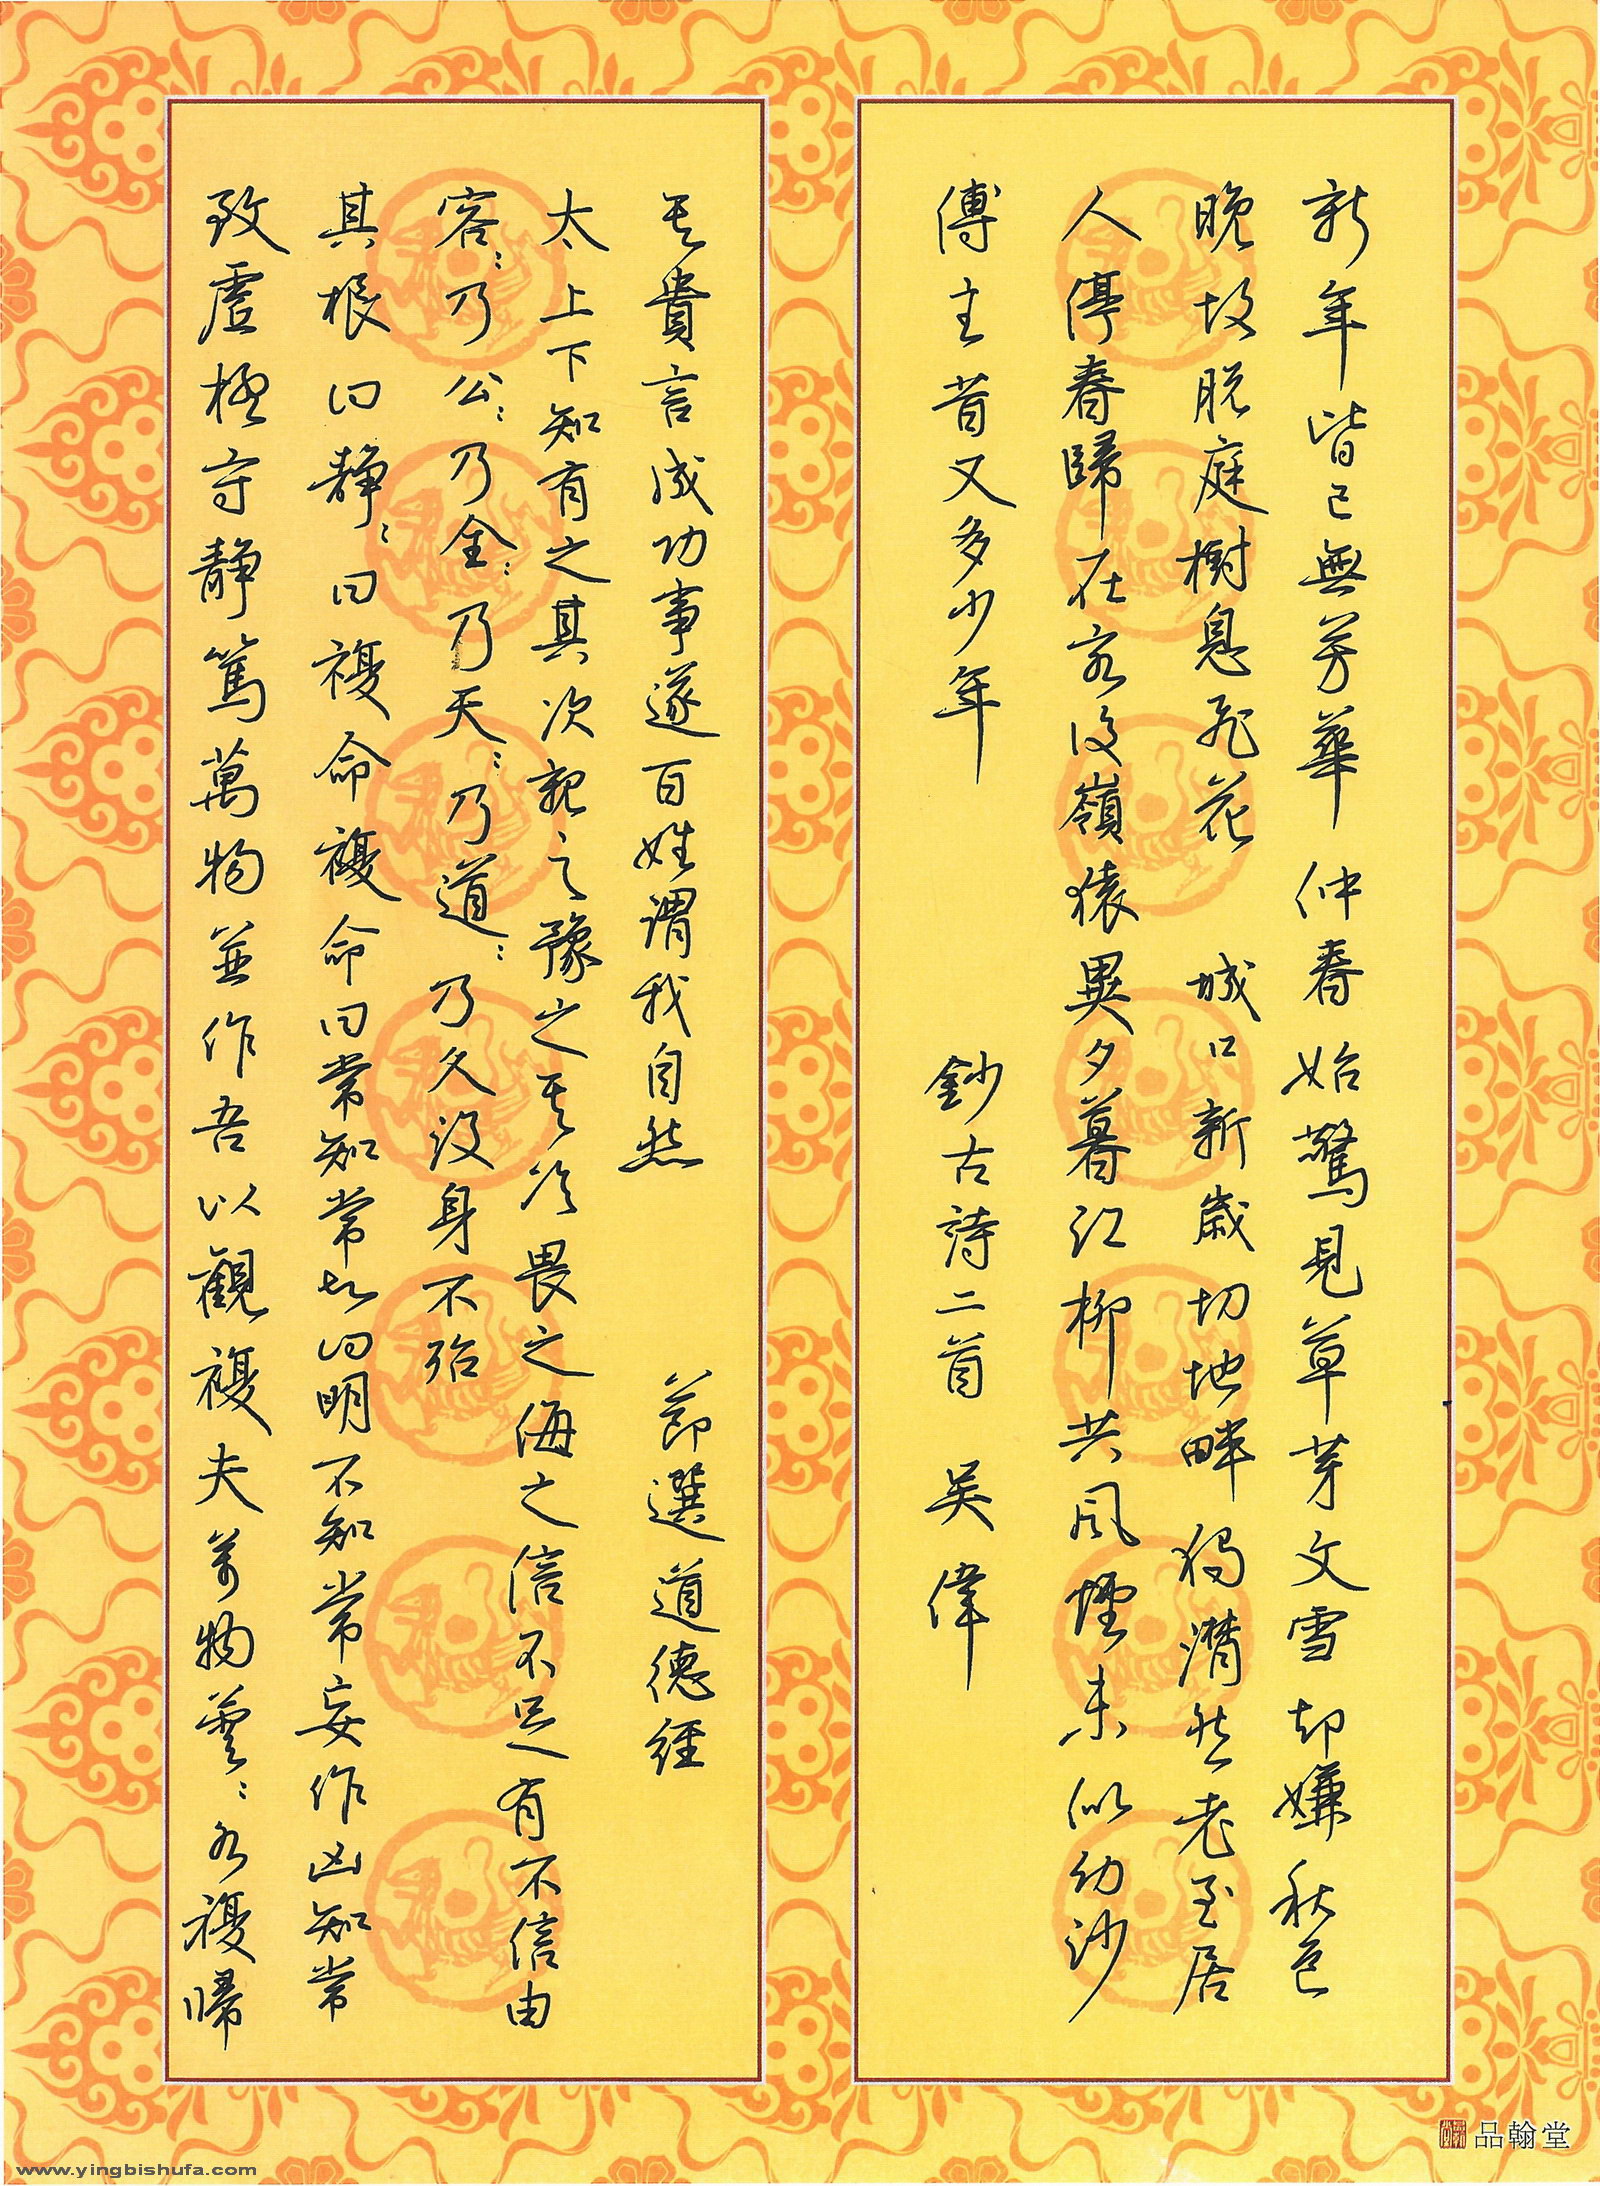 新年皆已無芳華 仲春始驚見草芽文雪却嫌秋色
晚故脱庭樹息飛花 城口新歲切地畔獨潸然老至居
人停春歸在客後嶺猿異夕暮江柳共風煙未似幼沙
傅主昔又多少年 鈔古詩二首 吳偉
致虛極守靜篤萬物並作吾以觀複夫萬物蕓:各複歸
其根曰靜:曰複命複命曰常知常知曰明不知常妄作凶知常
容:乃公:乃全:乃天:乃道:乃久没身不殆
太上下知有之其次親之豫之其次畏之侮之信不足有不信由
其貴言成功事遂百姓謂我自然 節選道德經
品翰堂
www.yingbishufa.com